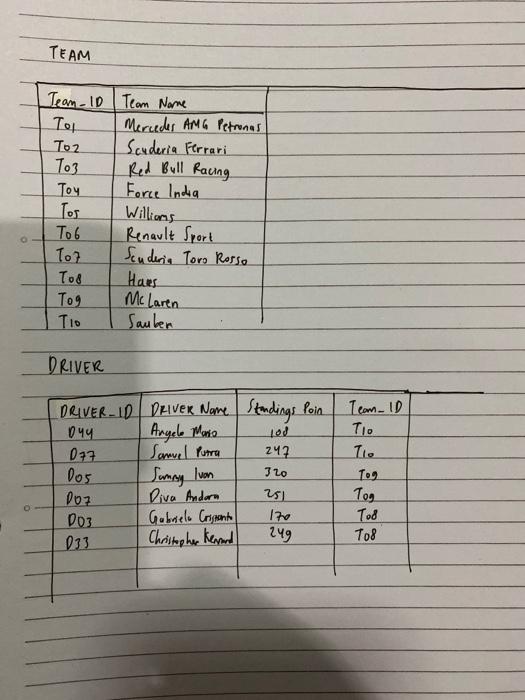 TEAM
Team_ID Team Name
T01 Mercedes AMG Petronas
T02 Scuderia Ferrari
T03 Red Bull Racing
T04 Force India
T05 Williams
T06 Renault Sport
T07 Scuderia Toro Rosso
T08 Haas
T09 McLaren
T10 Sauber
DRIVER
DRIVER_ID DRIVER Name Standings Poin Team_ID
D44 Angelo 100 T10
D77 Samuel Putra 247 T10
D05 Sammy Ivan 320 T09
D07 Diva Andara 251 T09
D03 Gabriela 170 T08
D33 Christopher 249 T08